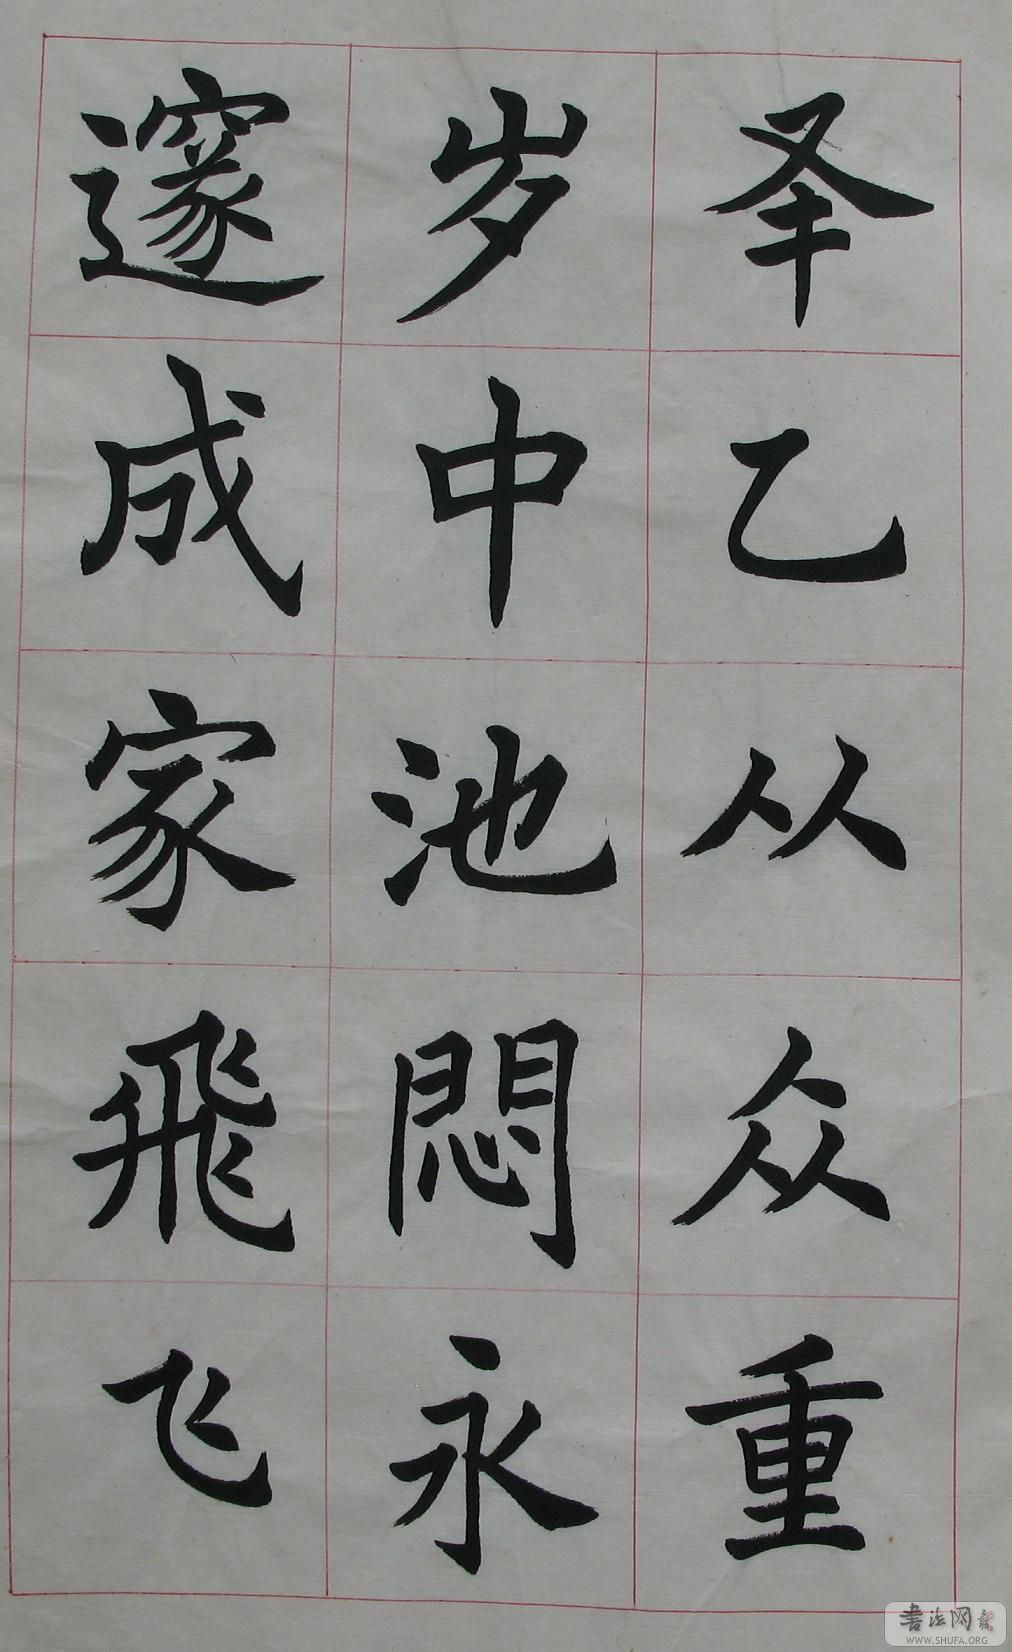 圣乙从众重
岁中池悶永
邃成家飛飞
书法网
WWW.SHUFA.ORG